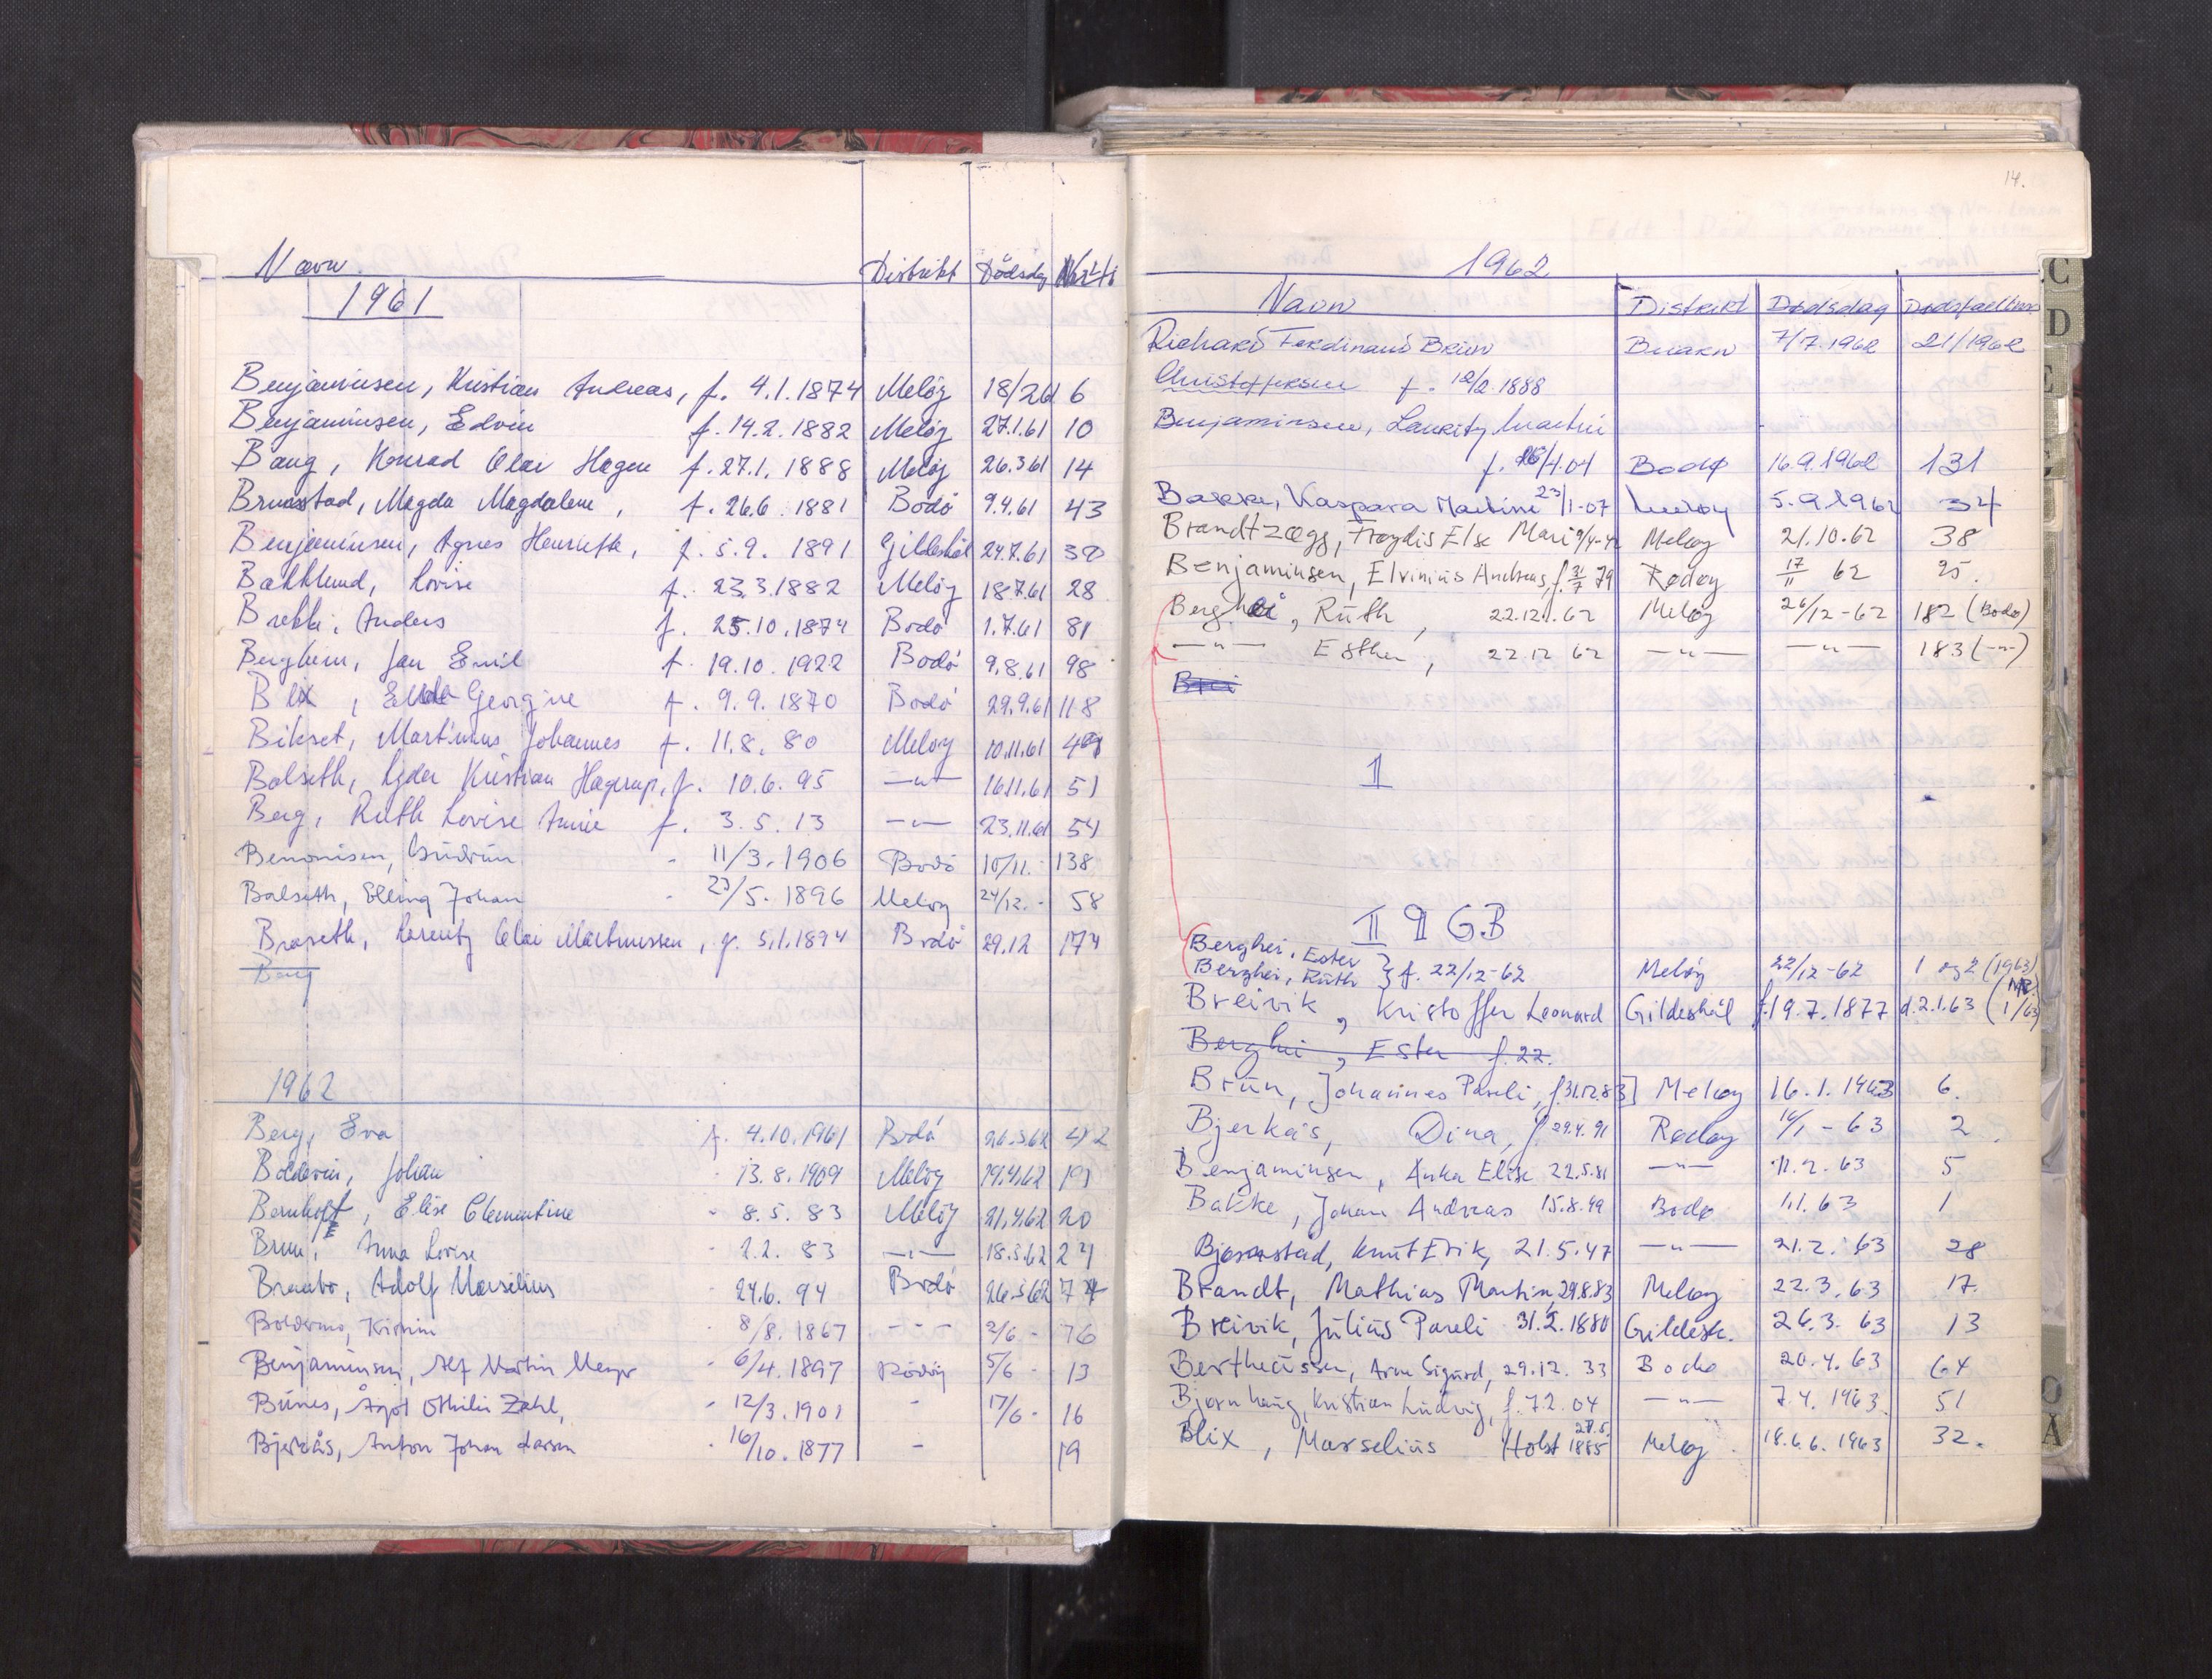 Navn Distrikt Dødsdag
1961
Benjaminsen, Kristian Andreas, f. 4.1.1874 Meløy 18/2 61 6
Benjaminsen, Edvin f. 14.2.1882 Meløy 27.1.61 10
Bang, Konrad Olai Hagen f. 27.1.1888 Meløy 26.3.61 14
Brunstad, Magda Magdalene, f. 26.6.1881 Bodø 9.4.61 43
Benjaminsen, Agnes Henriette, f. 5.9.1891 Gildeskål 24.7.61 30
Bakklund, Lovise f. 23.3.1882 Meløy 18.7.61 28
Brekke, Anders f. 25.10.1874 Bodø 1.7.61 81
Bergheim, Jan Emil f. 19.10.1922 Bodø 9.8.61 98
Blix, Georgine f. 9.9.1870 Bodø 29.9.61 118
Bikset, Martinus Johannes f. 11.8.80 Meløy 10.11.61
Balseth, Kristian Hagerup, f. 10.6.95 —"— 16.11.61 51
Berg, Ruth Lovise Annie f. 3.5.13 —"— 23.11.61 54
Benonisen, Gudrun - 11/3.1906 Bodø 10/11.- 138
Balseth, Elling Johan - 23/5.1896 Meløy 24/12.- 58
Braseth, Lorentz Olai Martinussen, f. 5.1.1894 Bodø 29.12 174
Berg
1962
Berg, Eva f. 4.10.1961 Bodø 26.3.62 42
Bolderin, Johan - 13.8.1909 Meløy 19.4.62 19
Bernhoft, Elise Clementine - 8.5.83 Meløy 21.4.62 20
Brun, Anna Lovise - 2.2.83 —"— 18.3.62 24
Braabo, Adolf Marselius - 24.6.94 Bodø 26.5.62 74
Boldermo, - 8/8.1867 - - - 2/6 - 76
Benjaminsen, Alf Martin Meyer - 6/4.1897 Rødøy 5/6 - 13
Bunes, Ågot Othilie Zahl, - 12/3.1901 - 17/6 - 16
Bjerkås, Anton Johan Larsen - 16/10.1877 - 19
14.
1962
Navn Distrikt Dødsdag
Richard Ferdinand Brun Beiarn 7/7.1962 21/1962
Christoffersen f. 12/2.1888
Benjaminsen, Lauritz Martin
f. 16/4.04 Bodø 16.9.1962 131
Bakke, Kaspara Martine 23/1-07 Meløy 5.9.1962 34
Brandtzægg, Frøydis Else Mari 9/4-42 Meløy 21.10.62 38
Benjaminsen, Elvinius Andreas, f. 31/7 79 Rødøy 17/11 62 25.
Berghei, Ruth, 22.12.62 Meløy 26/12-62 182 (Bodø)
—"— Esther, 22.12 62 —"— —"— 183 (-"-)
1
II 9 GB
Berghei, Ester
Berghei, Ruth } f. 22/12-62 Meløy 22/12-62 1 og 2 (1963)
Breivik, Kristoffer Leonard Gildeskål f. 19.7.1877 d. 2.1.63 (Nr. 1/63)
Berghei, Ester f. 22.
Brun, Johannes Pareli, f. 31.12.83] Meløy 16.1.1963 6.
Bjerkås, Dina, f 29.4.91 Rødøy 14/1 - 63 2.
Benjaminsen, Anka Elise 22.5.81 —"— 11.2.63 5
Bakke, Johan Andreas 15.8.99 Bodø 1.1.63 1
Bjørnstad, Knut Erik, 21.5.47 —"— 21.2.63 28
Brandt, Mathias Martin, 29.8.83 Meløy 22.3.63 17.
Breivik, Julius Pareli 31.2.1880 Gildesk. 26.3.63 13
Bertheussen, Arne Sigurd, 29.12.33 Bodø 20.4.63 64
Bjørnhaug, Kristian Ludvig, f. 7.2.04 —"— 7.4.1963 51
Blix, Marselius Holst 27.5.1885 Meløy 18.6.1963 32.